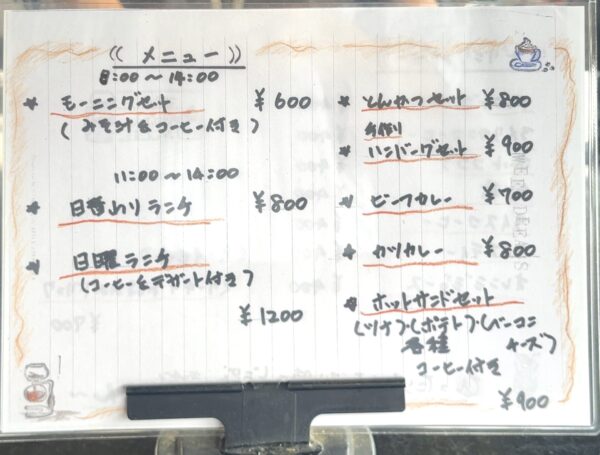 (( メニュー ))
8:00 〜 14:00
★ モーニングセット ¥600
(みそ汁&コーヒー付き)
11:00 〜 14:00
★ 日替わりランチ ¥800
★ 日曜ランチ
(コーヒー&デザート付き)
¥1200
★ とんかつセット ¥800
手作り
★ ハンバーグセット ¥900
★ ビーフカレー ¥700
★ カツカレー ¥800
★ ホットサンドセット
(ツナ)・(ポテト)・(ベーコン
各種 チーズ)
コーヒー付き
¥900